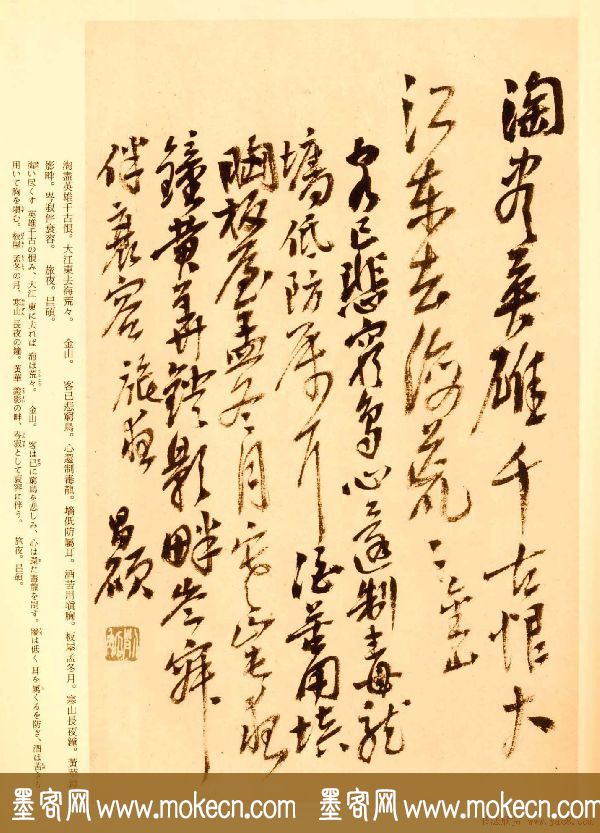 淘盡英雄千古恨大
江東去海荒〻金山
客已悲窮鳥心還制毒龍
墻低防屬耳酒苦用填
胸板屋孟冬月寒山長夜
鐘黄華鐙影畔岑寂
伴衰容旅夜 昌碩
淘盡英雄千古恨。大江東去海荒々。 金山。 客已悲窮鳥。心還制毒龍。墻低防屬耳。酒苦用塡胸。板屋孟冬月。寒山長夜鐘。黃華
影畔。岑寂伴衰容。 旅夜。昌碩。
淘い尽くす 英雄千古の恨み、大江 東に去れば 海は荒々。 金山。 客は已に窮鳥を悲しみ、心は還た毒龍を制す。墻は低く 耳を属くるを防ぎ、酒は苦
用いて胸を塡む。板屋 孟冬の月、寒山 長夜の鐘。黃華 鐙影の畔、岑寂として衰容に伴う。 旅夜。昌碩。
墨客网 www.mokecn.com 墨客网 www.mokecn.com